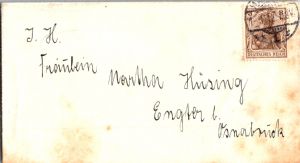 I. H.
Fräulein Martha Hüsing
Engter b.
Osnabrück
DEUTSCHES REICH